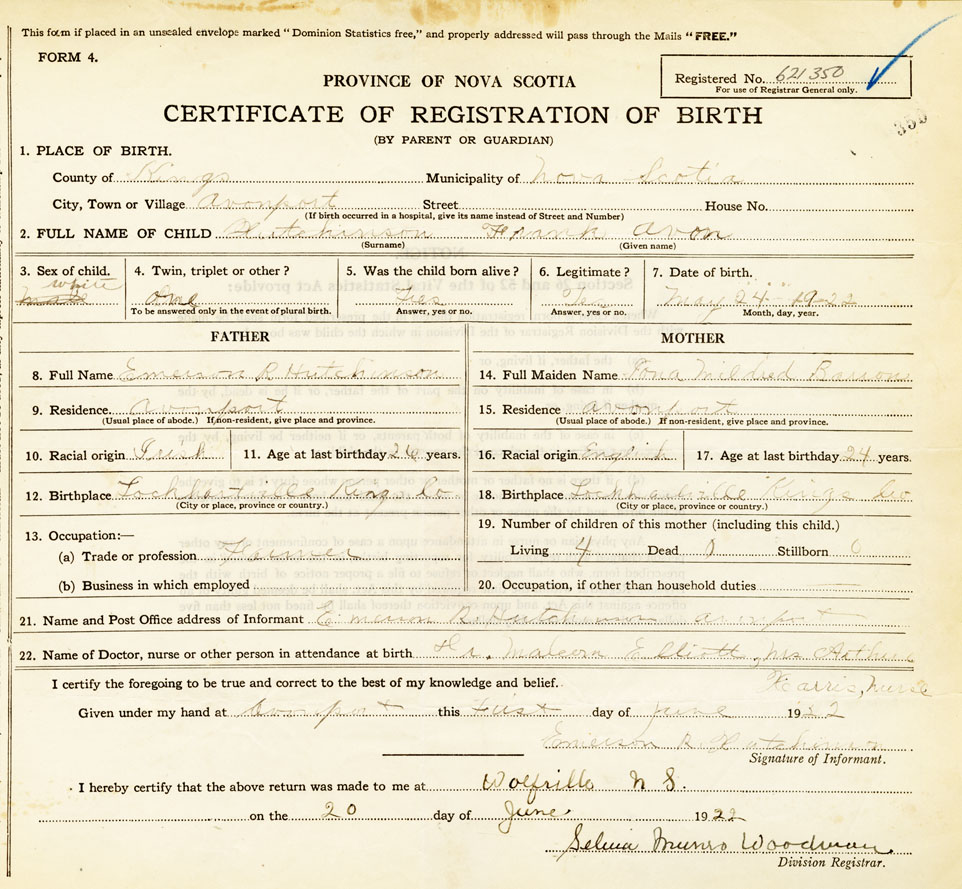 This form if placed in an unsealed envelope marked "Dominion Statistics free," and properly addressed will pass through the Mails "FREE."
FORM 4.
PROVINCE OF NOVA SCOTIA
Registered No. 621350
For use of Registrar General only.
CERTIFICATE OF REGISTRATION OF BIRTH
(BY PARENT OR GUARDIAN)
1. PLACE OF BIRTH.
County of Kings Municipality of Nova Scotia
City, Town or Village Avonport Street House No.
(If birth occurred in a hospital, give its name instead of Street and Number)
2. FULL NAME OF CHILD Hutchinson Frank Avon
(Surname) (Given name)
3. Sex of child. 4. Twin, triplet or other? 5. Was the child born alive? 6. Legitimate? 7. Date of birth.
white
male One Yes Yes May 24 - 1922
To be answered only in the event of plural birth. Answer, yes or no. Answer, yes or no. Month, day, year.
FATHER MOTHER
8. Full Name Emerson R Hutchinson 14. Full Maiden Name Iona Mildred
9. Residence. Avonport 15. Residence Avonport
(Usual place of abode.) If non-resident, give place and province. (Usual place of abode.) If non-resident, give place and province.
10. Racial origin Irish 11. Age at last birthday 26 years. 16. Racial origin English 17. Age at last birthday 24 years.
12. Birthplace Lockhartville Kings Co. 18. Birthplace Lockhartville Kings Co
(City or place, province or country.) (City or place, province or country.)
19. Number of children of this mother (including this child.)
13. Occupation:—
(a) Trade or profession Farmer Living 4 Dead 0 Stillborn 0
(b) Business in which employed 20. Occupation, if other than household duties
21. Name and Post Office address of Informant Emerson R. Hutchinson Avonport
22. Name of Doctor, nurse or other person in attendance at birth Dr. Elliott, Mrs Arthur
Harris, nurse
I certify the foregoing to be true and correct to the best of my knowledge and belief.
Given under my hand at Avonport this First day of June 1922
Emerson R. Hutchinson
Signature of Informant.
I hereby certify that the above return was made to me at Wolfville N S.
on the 20 day of June 1922
Selina Munro Woodman
Division Registrar.